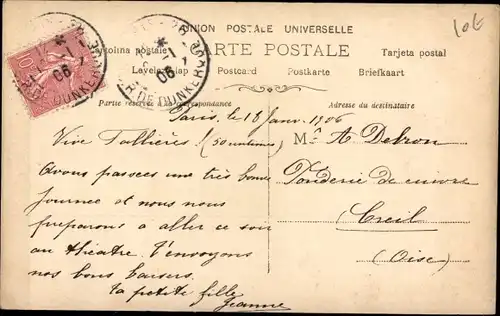 10€
UNION POSTALE UNIVERSELLE
CARTE POSTALE
Cartolina postale
Tarjeta postal
Levelezö-Lap Postcard Postkarte Briefkaart
Partie réservée à la correspondance
Adresse du destinataire
10
06
R. DE DUNKERQUE
Paris, le 18 Janv. 1906
Vive Fallières
Mr A Debron
Avons passées une très bonne
Fonderie de cuivre
journée et nous nous
préparons a aller ce soir
Creil
au théatre. T'envoyons
(Oise)
nos bons baisers.
Ta petite fille
Jeanne